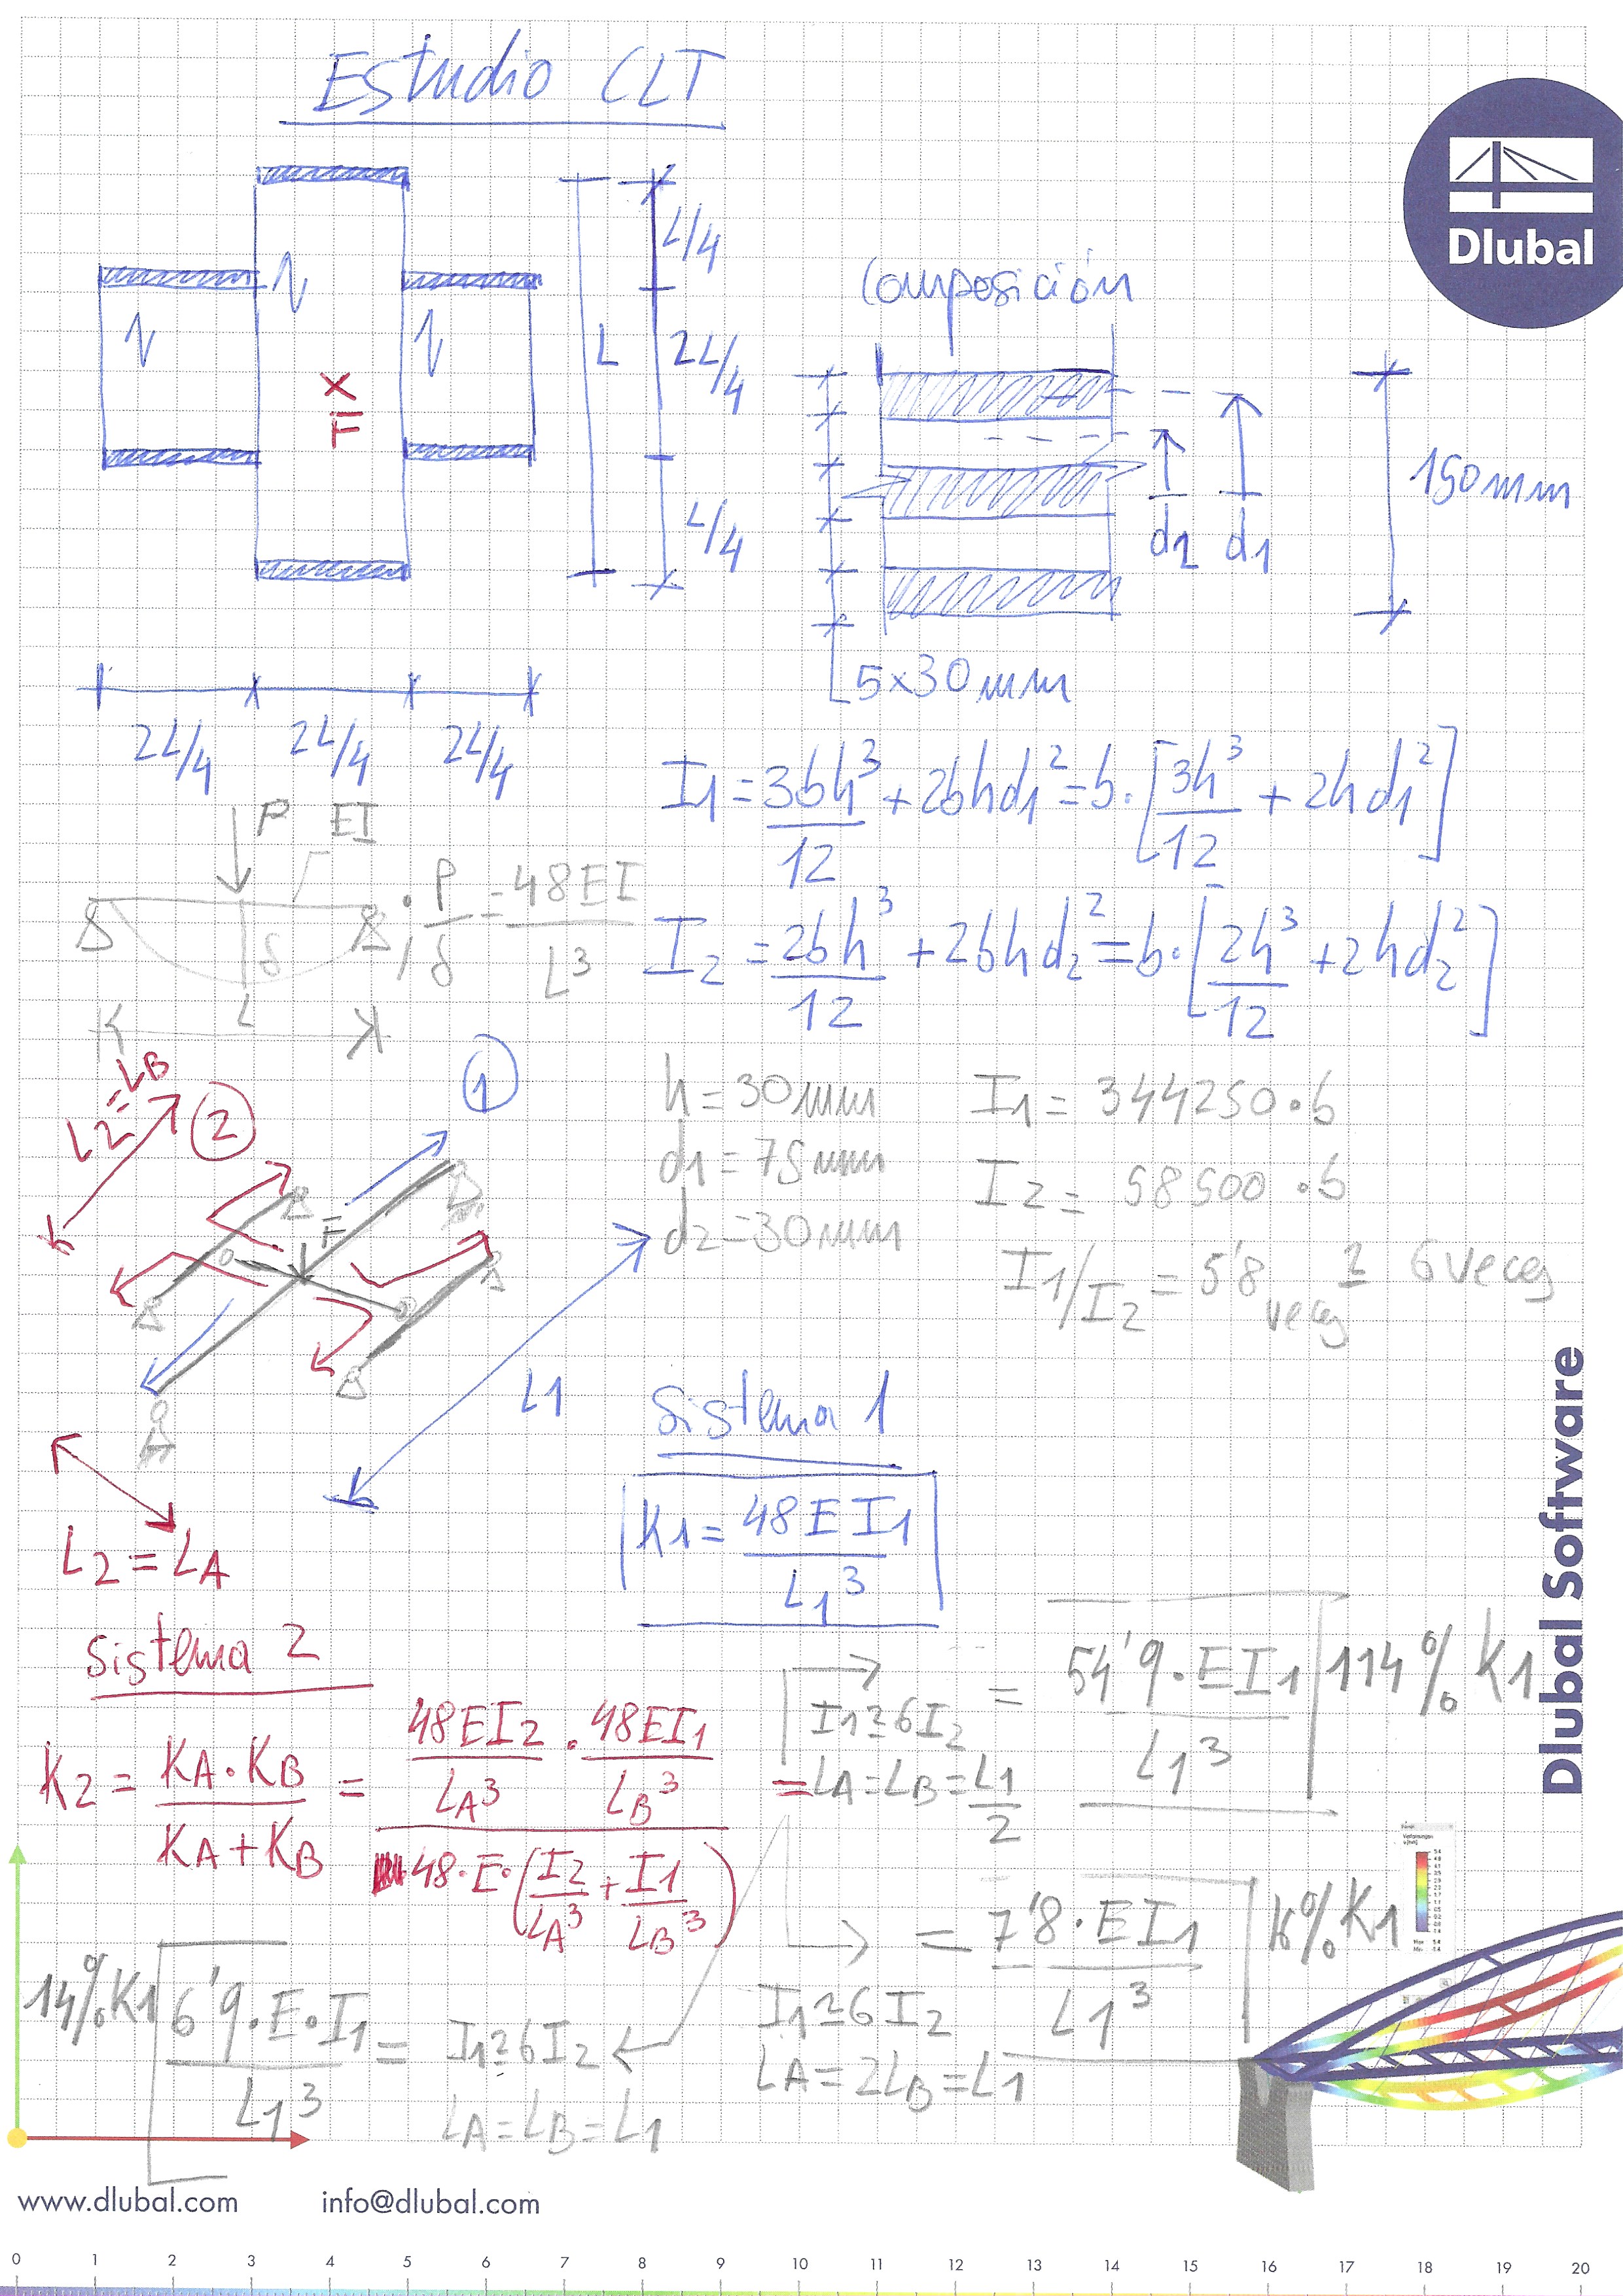 Estudio CLT
Dlubal
L/4
L
2L/4
L/4
FIX
Composición
150mm
d2
d1
5x30mm
2L/4 2L/4 2L/4
I1 = 3bh³/12 + 2bhd1² = b·[3h³/12 + 2hd1²]
P EI
δ
L
P/δ = 48EI/L³
I2 = 2bh³/12 + 2bhd2² = b·[2h³/12 + 2hd2²]
h = 30mm
d1 = 75mm
d2 = 30mm
I1 = 344250·b
I2 = 58500·b
I1/I2 = 5'8 veces ≃ 6 veces
L2 = LB
2
1
F
L1
L2 = LA
Sistema 1
K1 = 48EI1/L1³
Sistema 2
K2 = KA·KB/KA+KB = 48EI2/LA³ · 48EI1/LB³ / 48·E·(I2/LA³ + I1/LB³) =
I1≃6I2
LA=LB=L1/2
= 54'9·EI1/L1³ 114% K1
= 7'8·EI1/L1³ 16% K1
I1≃6I2
LA=2LB=L1
14% K1 6'9·E·I1/L1³ = I1≃6I2
LA=LB=L1
Dlubal Software
www.dlubal.com info@dlubal.com
0 1 2 3 4 5 6 7 8 9 10 11 12 13 14 15 16 17 18 19 20